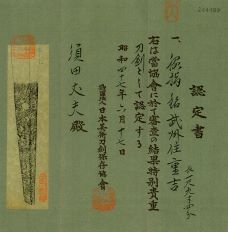 認定書
一、脇指 銘 武州住重吉
長一尺九寸四分
右は當協會に於て審査の結果特別貴重
刀剣として認定する
昭和四十七年六月十七日
財團法人日本美術刀剣保存協會
須田 夫殿